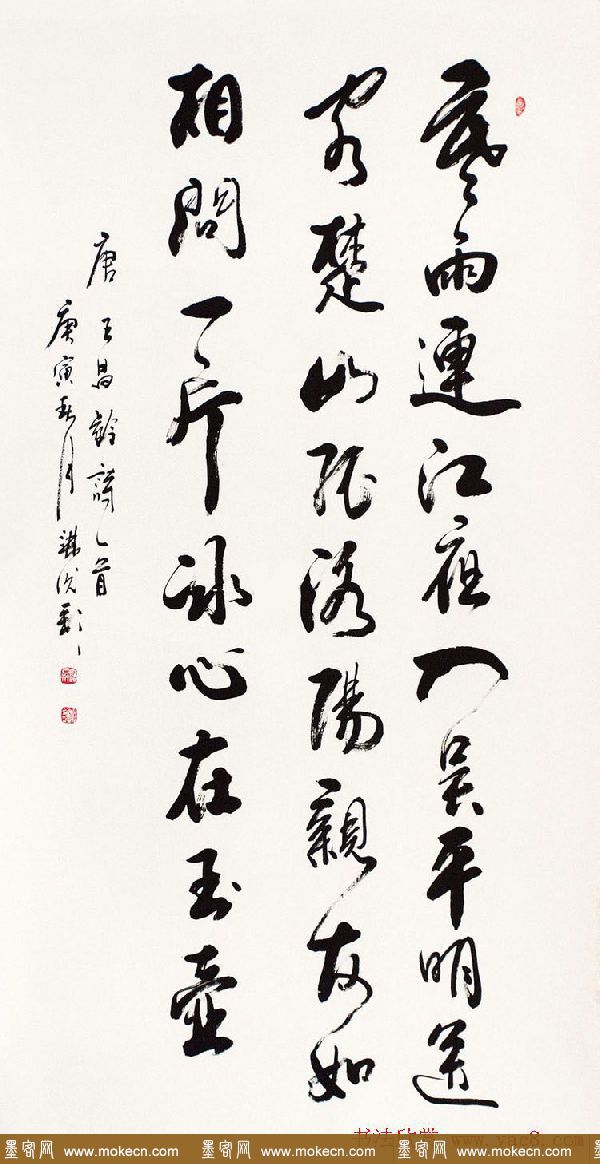 寒雨連江夜入吳平明送
客楚山孤洛陽親友如
相問一片冰心在玉壺
唐王昌齡詩乙首
庚寅春月
书法欣赏 www.yac8.com
墨客网 www.mokecn.com 墨客网 www.mokecn.com 墨客网 www.mokecn.com